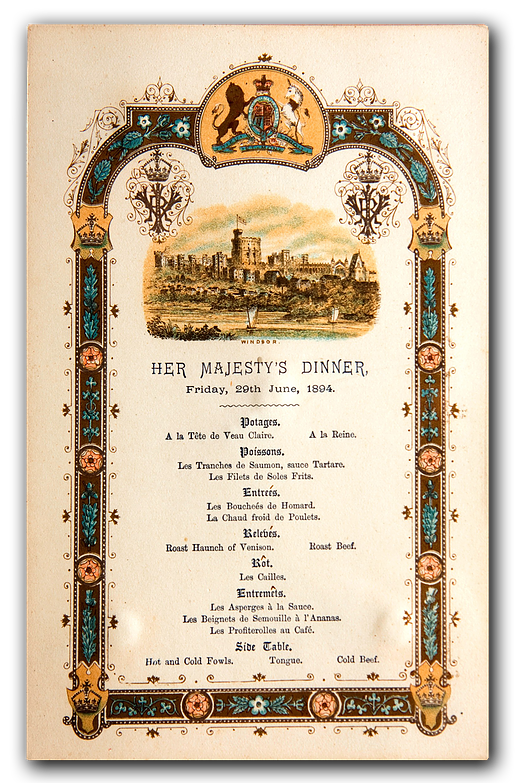 WINDSOR.
HER MAJESTY'S DINNER,
Friday, 29th June, 1894.
Potages.
A la Tête de Veau Claire. A la Reine.
Poissons.
Les Tranches de Saumon, sauce Tartare.
Les Filets de Soles Frits.
Entreés.
Les Boucheés de Homard.
La Chaud froid de Poulets.
Relevés.
Roast Haunch of Venison. Roast Beef.
Rôt.
Les Cailles.
Entremêts.
Les Asperges à la Sauce.
Les Beignets de Semouille à l'Ananas.
Les Profiterolles au Café.
Side Table.
Hot and Cold Fowls. Tongue. Cold Beef.